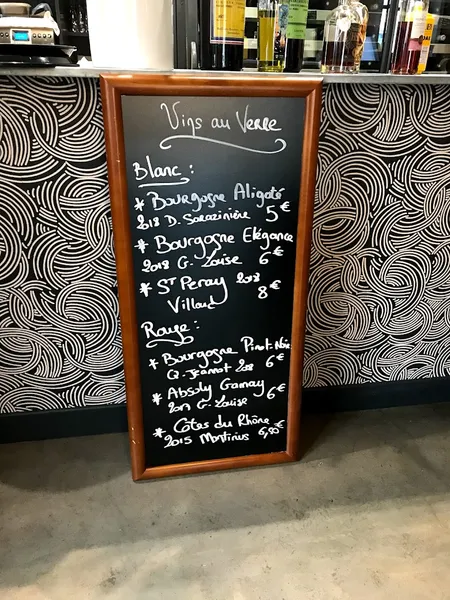 Vins au Verre
Blanc :
* Bourgogne Aligoté
2018 D. Sarazinière 5€
* Bourgogne Elégance
2018 G. Louise 6€
* St Peray 2018
Villard 8€
Rouge :
* Bourgogne Pinot-Noir
Q. Jeannot 2018 6€
* Absoly Gamay
2017 G. Louise 6€
* Côtes du Rhône
2015 Montirius 6,50€